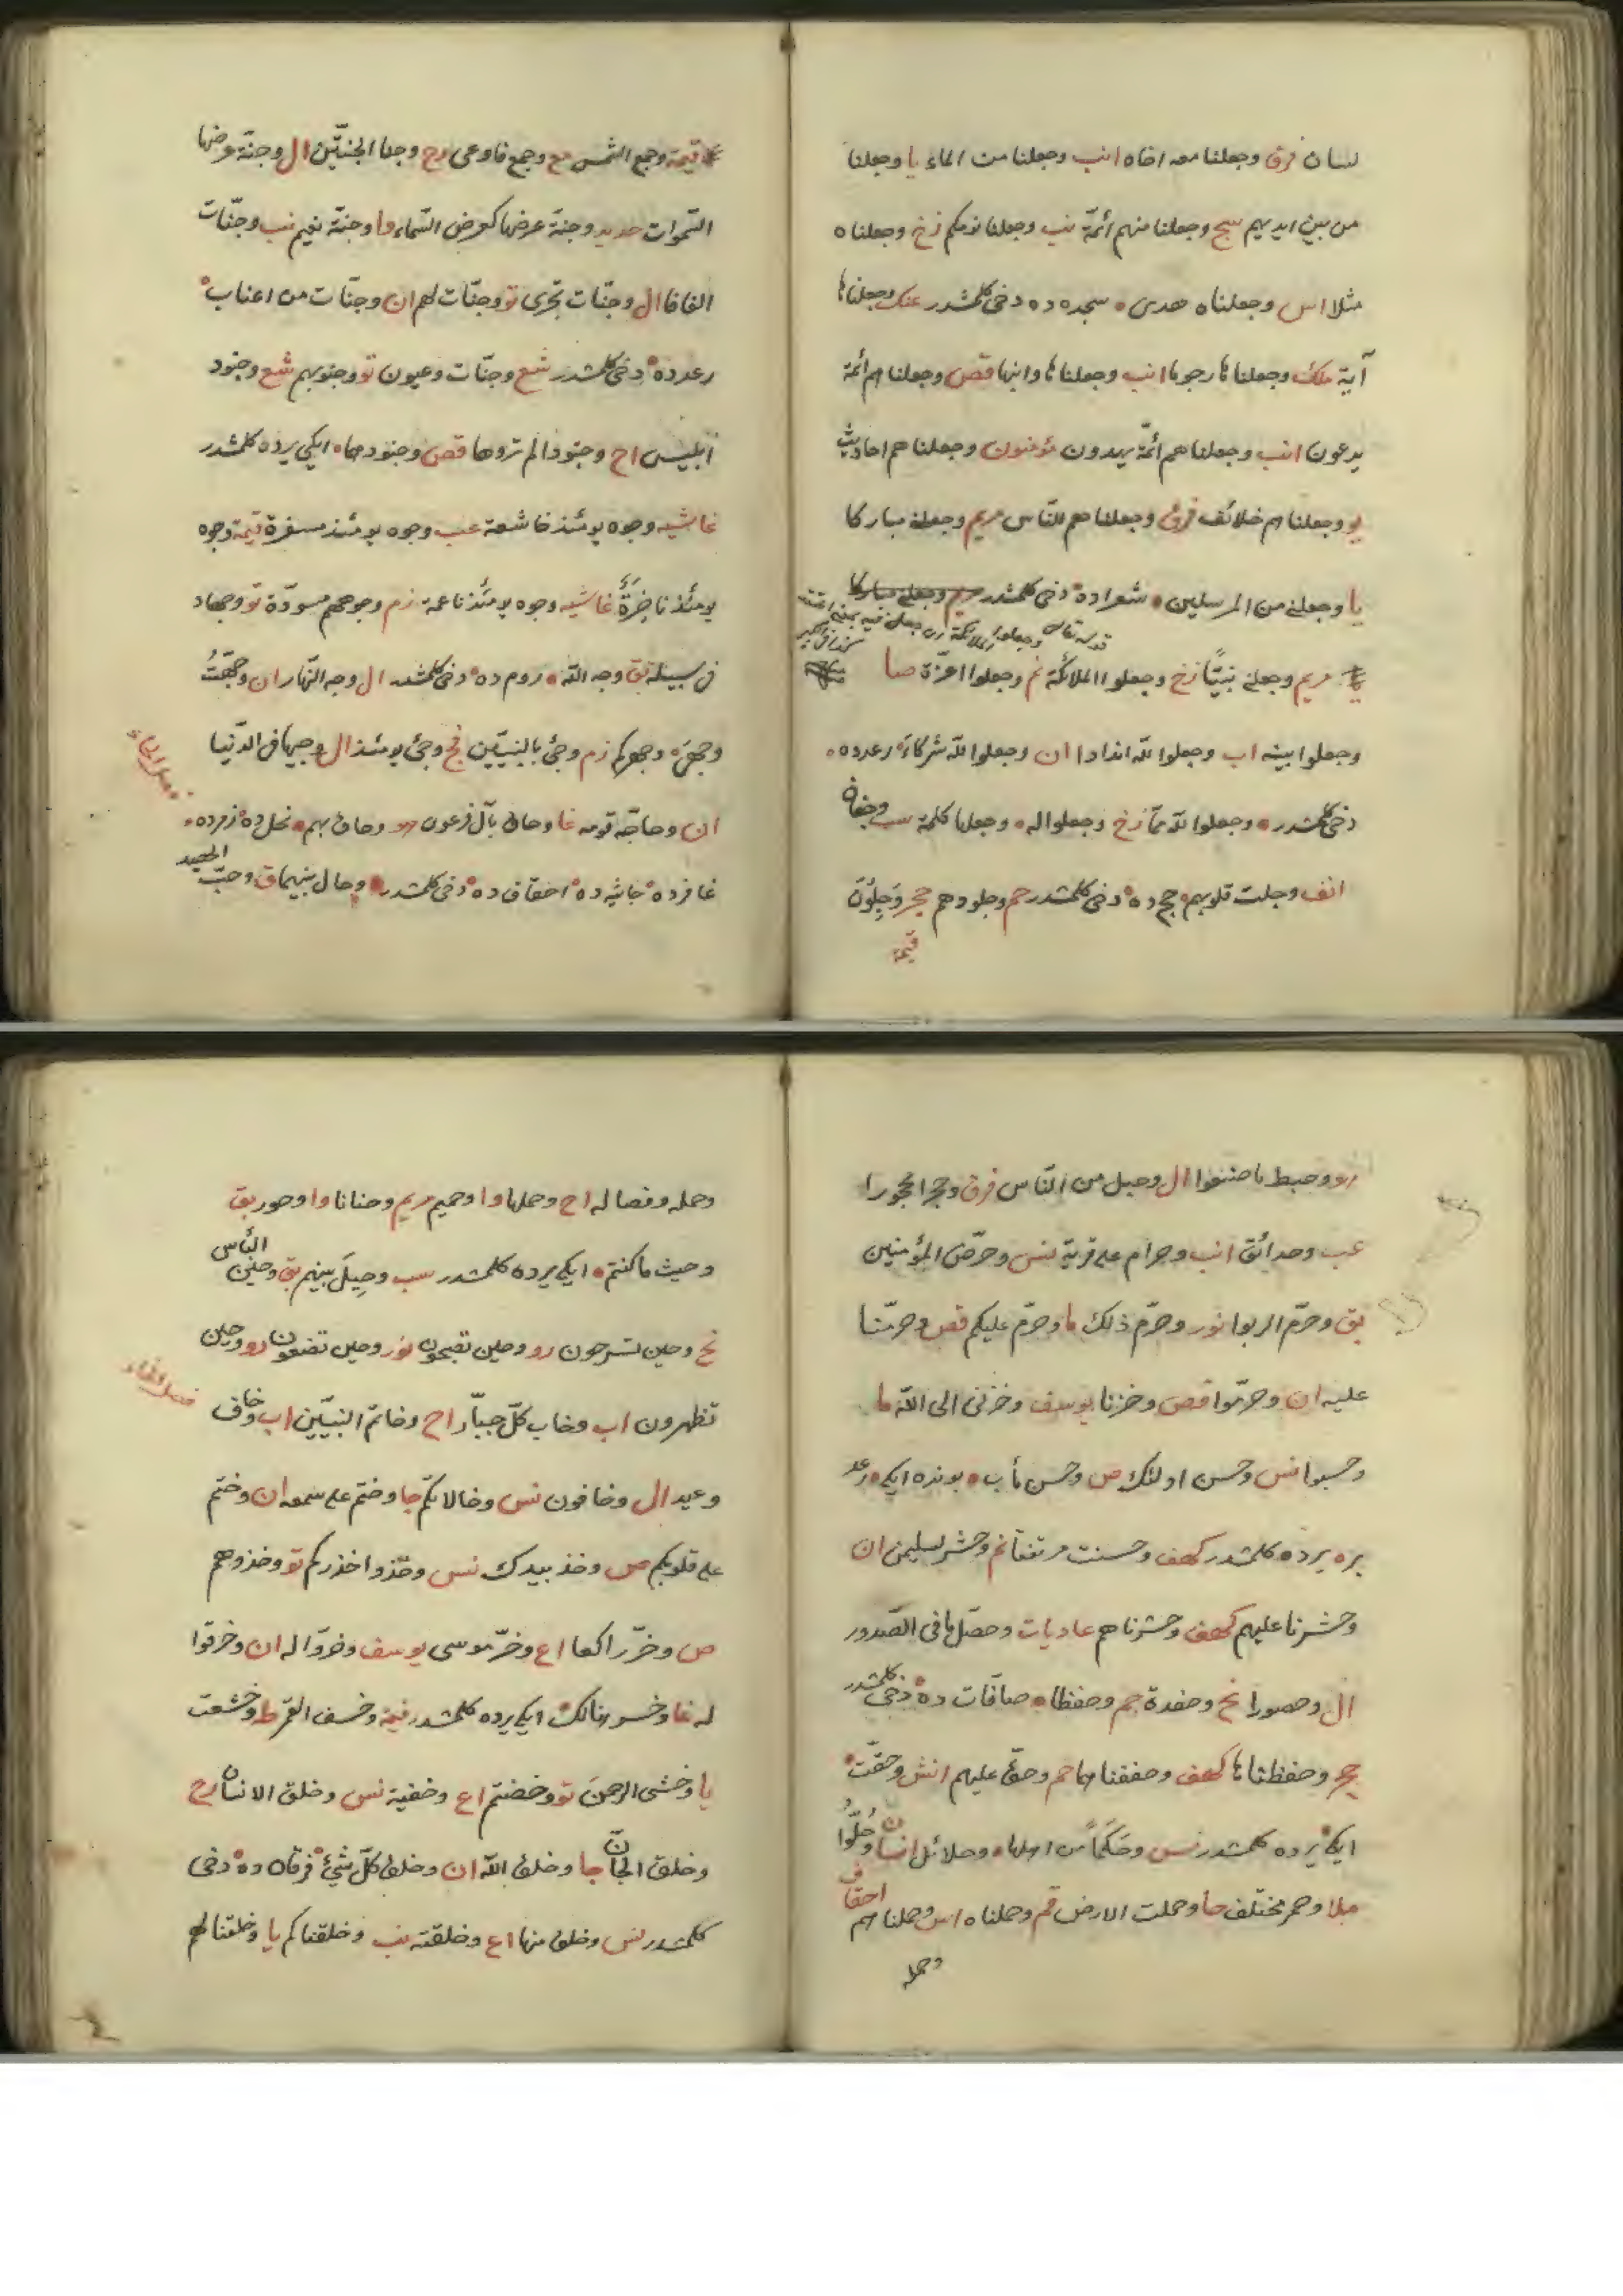 لسان فرق وجعلنا معه اخاه انب وجعلنا من الماء يا وجعلنا
من بين ايديهم سج وجعلنا منهم أئمّة نب وجعلنا نومكم زخ وجعلناه
مثلا اس وجعلناه هدى سجده ده دخى كلمشدر عنك وجعلناها
آية ملك وجعلناها رجوما انب وجعلناها وابنها قص وجعلناهم أئمة
يدعون انب وجعلناهم أئمّة يهدون مؤمنون وجعلناهم احاديث
يو وجعلناهم خلائف فرق وجعلناهم للنّاس مريم وجعلنى مباركا
يا وجعلنى من المرسلين شعراده دخى كلمشدر
مريم وجعلنى نبيّا زخ وجعلوا الملائكة نم وجعلوا اعزّة صا
وجعلوا بينه اب وجعلوا للّه اندادا ان وجعلوا للّه شركاء رعدده
دخى كلمشدر وجعلوا للّه ممّا زخ وجعلوا له وجعلها كلمة سب وجفان
انف وجلت قلوبهم حج ده دخى كلمشدر حم وجلودهم حجر وَجِلُونَ
قيمة
قيمة وجمع الشّمس مع وجمع فاوعى رح وجنا الجنتين ال وجنّة عرضها
السّموات حديد وجنّة عرضها كعرض السّماء وا وجنّة نعيم نب وجنّات
الفافا ال وجنّات تجرى تو وجنّات لهم ان وجنّات من اعناب
رعدده دخى كلمشدر شع وجنّات وعيون تو وجنوبهم شع وجنود
ابليس اح وجنودا لم تروها قص وجنودهما ايكى يرده كلمشدر
غاشيه وجوه يومئذ خاشعة عب وجوه يومئذ مسفرة قيمة وجوه
يومئذ ناضرة غاشيه وجوه يومئذ ناعمة زم وجوههم مسودّة تو وجهاد
فى سبيله بق وجه اللّه روم ده دخى كلمشدر ال وجه النّهار ان وجّهت
وجهى وجهركم زم وجئ بالنبيّين فج وجئ يومئذ ال وجيها فى الدّنيا
ان وحاجّه قومه غا وحاق بآل فرعون هو وحاق بهم نحل ده زمرده
غافرده جاثيه ده احقاف ده دخى كلمشدر وحال بينهما ق وحبّ الحصيد
هو وحبط ما صنعوا ال وحبل من النّاس فرق وحجرا محجورا
عب وحدائق انب وحرام على قرية نس وحرّض المؤمنين
بق وحرّم الربوا نور وحرّم ذلك ما وحرّم عليكم قص وحرّمنا
عليه ان وحرّموا قص وحزنا يوسف وحزنى الى اللّه ما
وحسبوا نس وحسن اولئك ص وحسن مأب بونده ايكى رعد
يره يرده كلمشدر كهف وحسنت مرتفقا نم وحشر لسليمن ان
وحشرنا عليهم كهف وحشرناهم عاديات وحصّل ما فى الصّدور
ال وحصورا نح وحفدة حم وحفظا صافّات ده دخى كلمشدر
حجر وحفظناها كهف وحففناهما حم وحقّ عليهم انش وحقّت
ايكى يرده كلمشدر نس وحَكَمًا من اهلها وحلائل انسان وحُلّوا
ملا وحمر مختلف حا وحملت الارض قم وحملناه اس وحملناهم احقاف
وحمله
وحمله وفصاله اح وحملها وا وحميم مريم وحنانا وا وحور بق
وحيث ما كنتم ايكى يرده كلمشدر سب وحِيلَ بينهم بق وحين النّأس
نح وحين تسرحون رو وحين تصبحون نور وحين تضعون رو وحين
تظهرون اب وخاب كلّ جبّار اح وخاتم النبيّين اب وخاف
وعيد ال وخافون نس وخالاتكم جا وختم على سمعه ان وختم
على قلوبكم ص وخذ بيدك نس وخذوا حذركم تو وخذوهم
ص وخرّ راكعا اع وخرّ موسى يوسف وخرّوا له ان وخرقوا
له غا وخسر هنالك ايكى يرده كلمشدر قيمة وخسف القمر ط وخشعت
يا وخشى الرحمن تو وخضتم اع وخفية نس وخلق الانسان رح
وخلق الجانّ جا وخلق اللّه ان وخلق كلّ شئ فرقان ده دخى
كلمشدر نس وخلق منها اع وخلقته نب وخلقناكم يا وخلقنا لهم